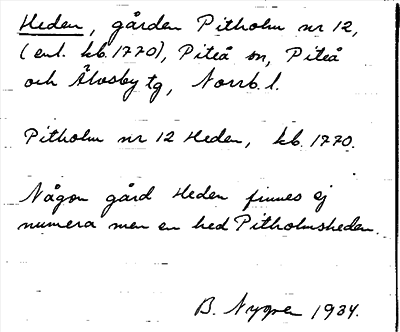 Heden, gården Pitholm nr 12,
(enl. kb. 1770), Piteå sn, Piteå
och Älvsby tg, Norrb. l.
Pitholm nr 12 Heden, kb. 1770.
Någon gård Heden finnes ej
numera men en hed Pitholmsheden.
B. Nygren 1934.